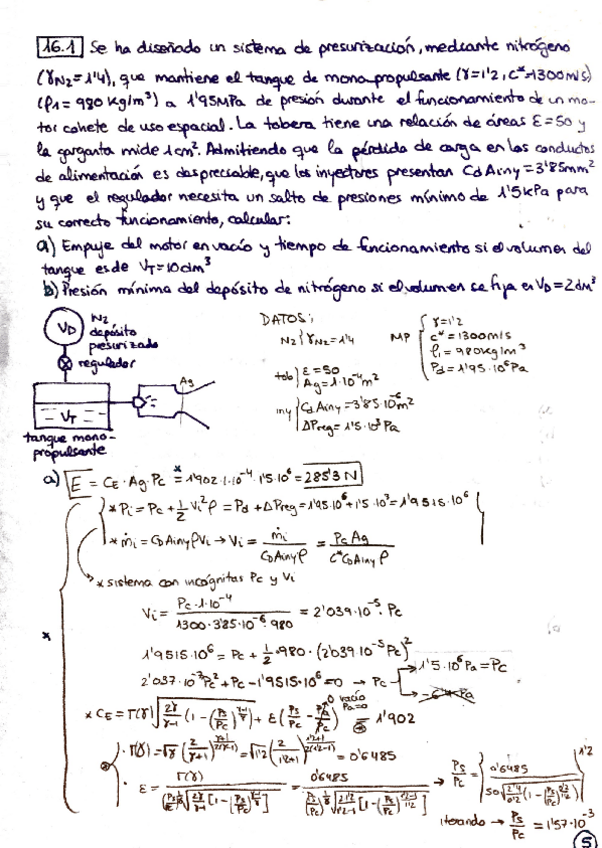 16.1 Se ha diseñado un sistema de presurización, mediante nitrógeno
(γN2=1'4), que mantiene el tanque de monopropulsante (γ=1'2, c*=1300m/s)
(ρ1=980 kg/m³) a 1'95MPa de presión durante el funcionamiento de un mo-
tor cohete de uso espacial. La tobera tiene una relación de áreas ε=50 y
la garganta mide 1cm². Admitiendo que la pérdida de carga en los conductos
de alimentación es despreciable, que los inyectores presentan CdAiny=3'85mm²
y que el regulador necesita un salto de presiones mínimo de 1'5kPa para
su correcto funcionamiento, calcular:
a) Empuje del motor en vacío y tiempo de funcionamiento si el volumen del
tanque es de VT=10dm³
b) Presión mínima del depósito de nitrógeno si el volumen se fija en VD=2dm³
VD
N2
depósito
presurizado
regulador
VT
tanque mono-
propulsante
Ag
DATOS:
N2 { γN2=1'4
tob { ε=50
Ag=1·10⁻⁴m²
iny { CdAiny=3'85·10⁻⁶m²
ΔPreg=1'5·10³Pa
MP { γ=1'2
c*=1300m/s
ρ1=980kg/m³
Pd=1'95·10⁶Pa
a) E = CE·Ag·Pc =* 1'902·1·10⁻⁴·1'5·10⁶ = 285'3 N
* Pi = Pc + 1/2 Vi²ρ = Pd + ΔPreg = 1'95·10⁶ + 1'5·10³ = 1'9515·10⁶
* ṁi = CDAinyρVi → Vi = ṁi/(CDAinyρ) = PcAg/(C*CDAinyρ)
* sistema con incógnitas Pc y Vi
Vi = Pc·1·10⁻⁴/(1300·3'85·10⁻⁶·980) = 2'039·10⁻⁵·Pc
1'9515·10⁶ = Pc + 1/2·980·(2'039·10⁻⁵Pc)²
2'037·10⁻⁷Pc² + Pc - 1'9515·10⁶ = 0 → Pc → 1'5·10⁶Pa = Pc
* CE = Γ(γ)√(2γ/(γ-1)(1-(Ps/Pc)^((γ-1)/γ)) + ε(Ps/Pc - Pa/Pc) = 1'902
vacío
Pa=0
· Γ(γ) = √γ(2/(γ+1))^((γ+1)/(2(γ-1))) = √1'2(2/(1'2+1))^((1'2+1)/(2(1'2-1))) = 0'6485
· ε = Γ(γ)/((Ps/Pc)^(1/γ)√(2γ/(γ-1)[1-(Ps/Pc)^((γ-1)/γ)])) = 0'6485/((Ps/Pc)^(1/1'2)√(2·1'2/(1'2-1)[1-(Ps/Pc)^((1'2-1)/1'2)])) → Ps/Pc = {0'6485/(50√(2'4/0'2(1-(Ps/Pc)^(0'2/1'2))))}^1'2
iterando → Ps/Pc = 1'57·10⁻³
5